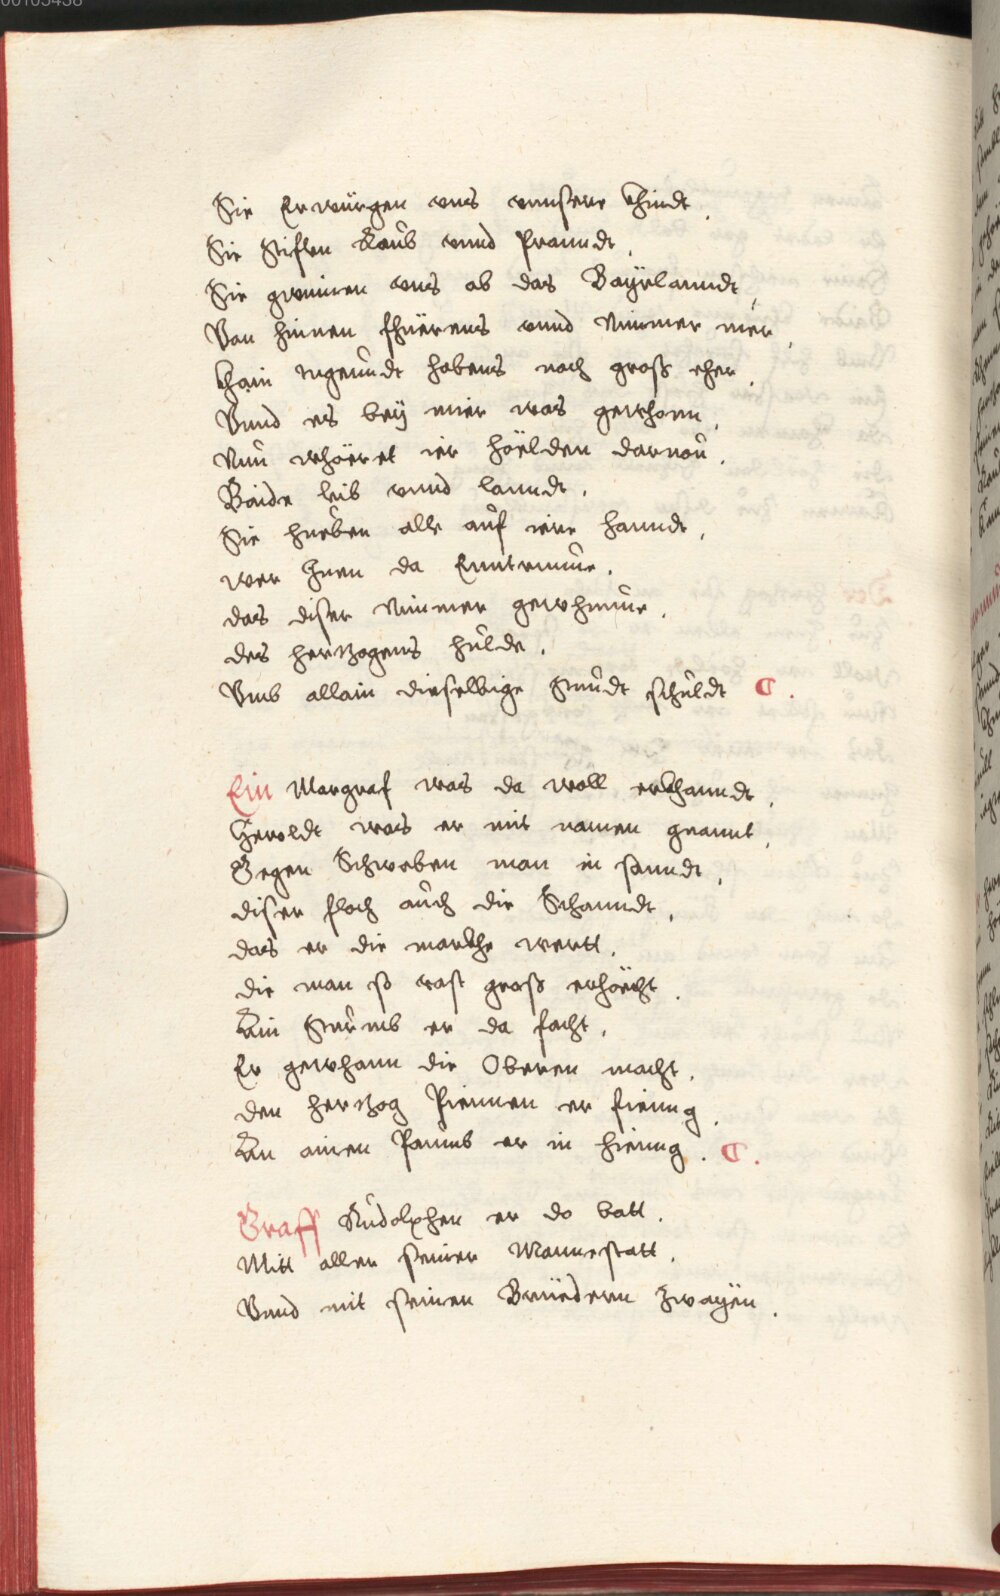 Sie Erwürgen vns vnnsere Khindt.
Sie Stifften Raub vnnd Pranndt.
Sie gwinnen vns ab das Bayrlanndt.
Von hinnen fhüerens vnnd Nimmer mer.
Khain tugenndt habens noch gross eher.
Vnnd es bey mier was gewhonn.
Nun whöeret ier höelden darnon.
Baide leib vnnd lanndt.
Sie hueben alle auf iere hanndt.
wer Inen da Enntrinne.
das diser Nimmer gewhinne.
des hertzogens hulde.
Vmb allain dieselbige Sundt schuldt C.
Ein Margraf was da woll erkhanndt.
Heroldt was er mit namen genannt.
Gegen Schwaben man in sanndt.
diser floch auch die Schanndt.
das er die markhe wertt.
die man so vast gross erhöecht.
Ain Sturmb er da facht.
Er gewhann die Oberen macht.
den hertzog Piennen er fienng.
An ainen Paumb er in hienng. C.
Graff Rudolphen er do batt.
Mitt aller seiner Mannestatt.
Vnnd mit seinen Brüedern zwayen.